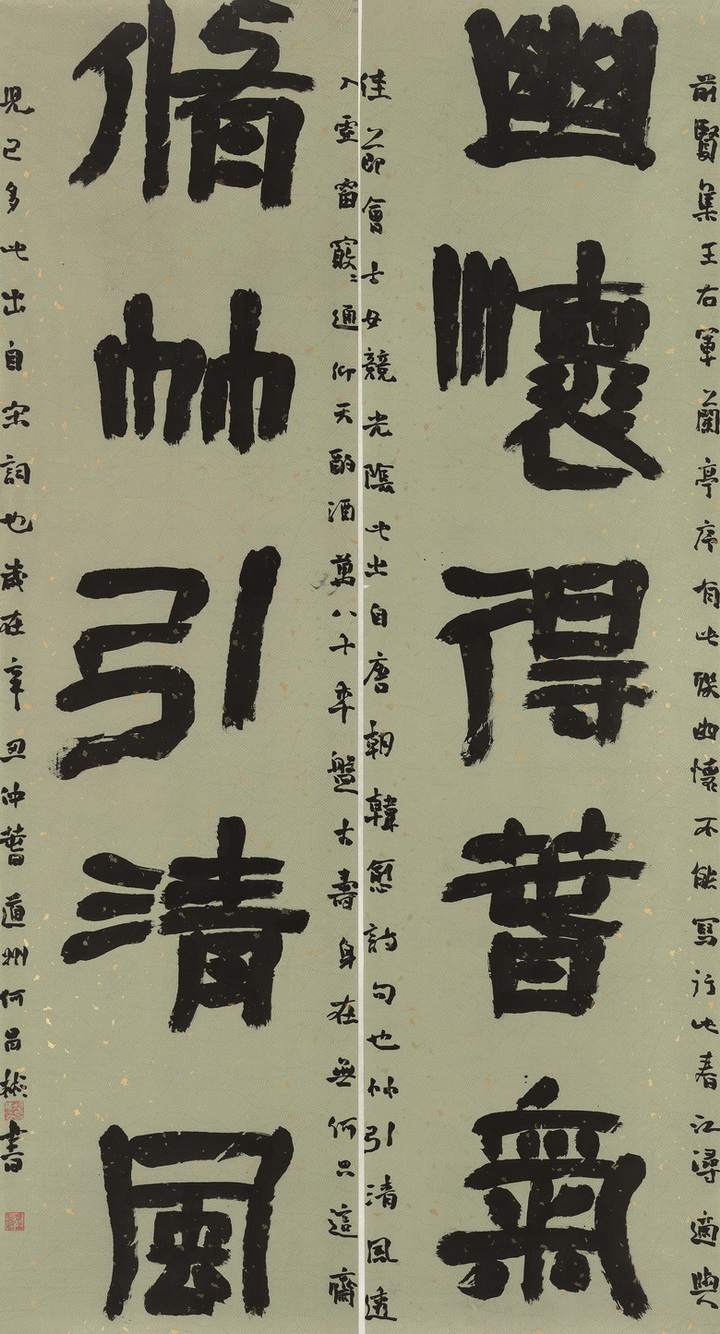 前賢集王右軍蘭亭序有此聯幽懷不能寫行此春江潯適與
幽懷得萅氣
佳節會士女競光陰此出自唐朝韓愈詩句也竹引清風透
入霊窗竅〻通仰天酹酒萬八千年盤古壽身在無何只這齋
脩竹引清風
兒已多此出自宋詞也歲在辛丑仲萅道州何昌書